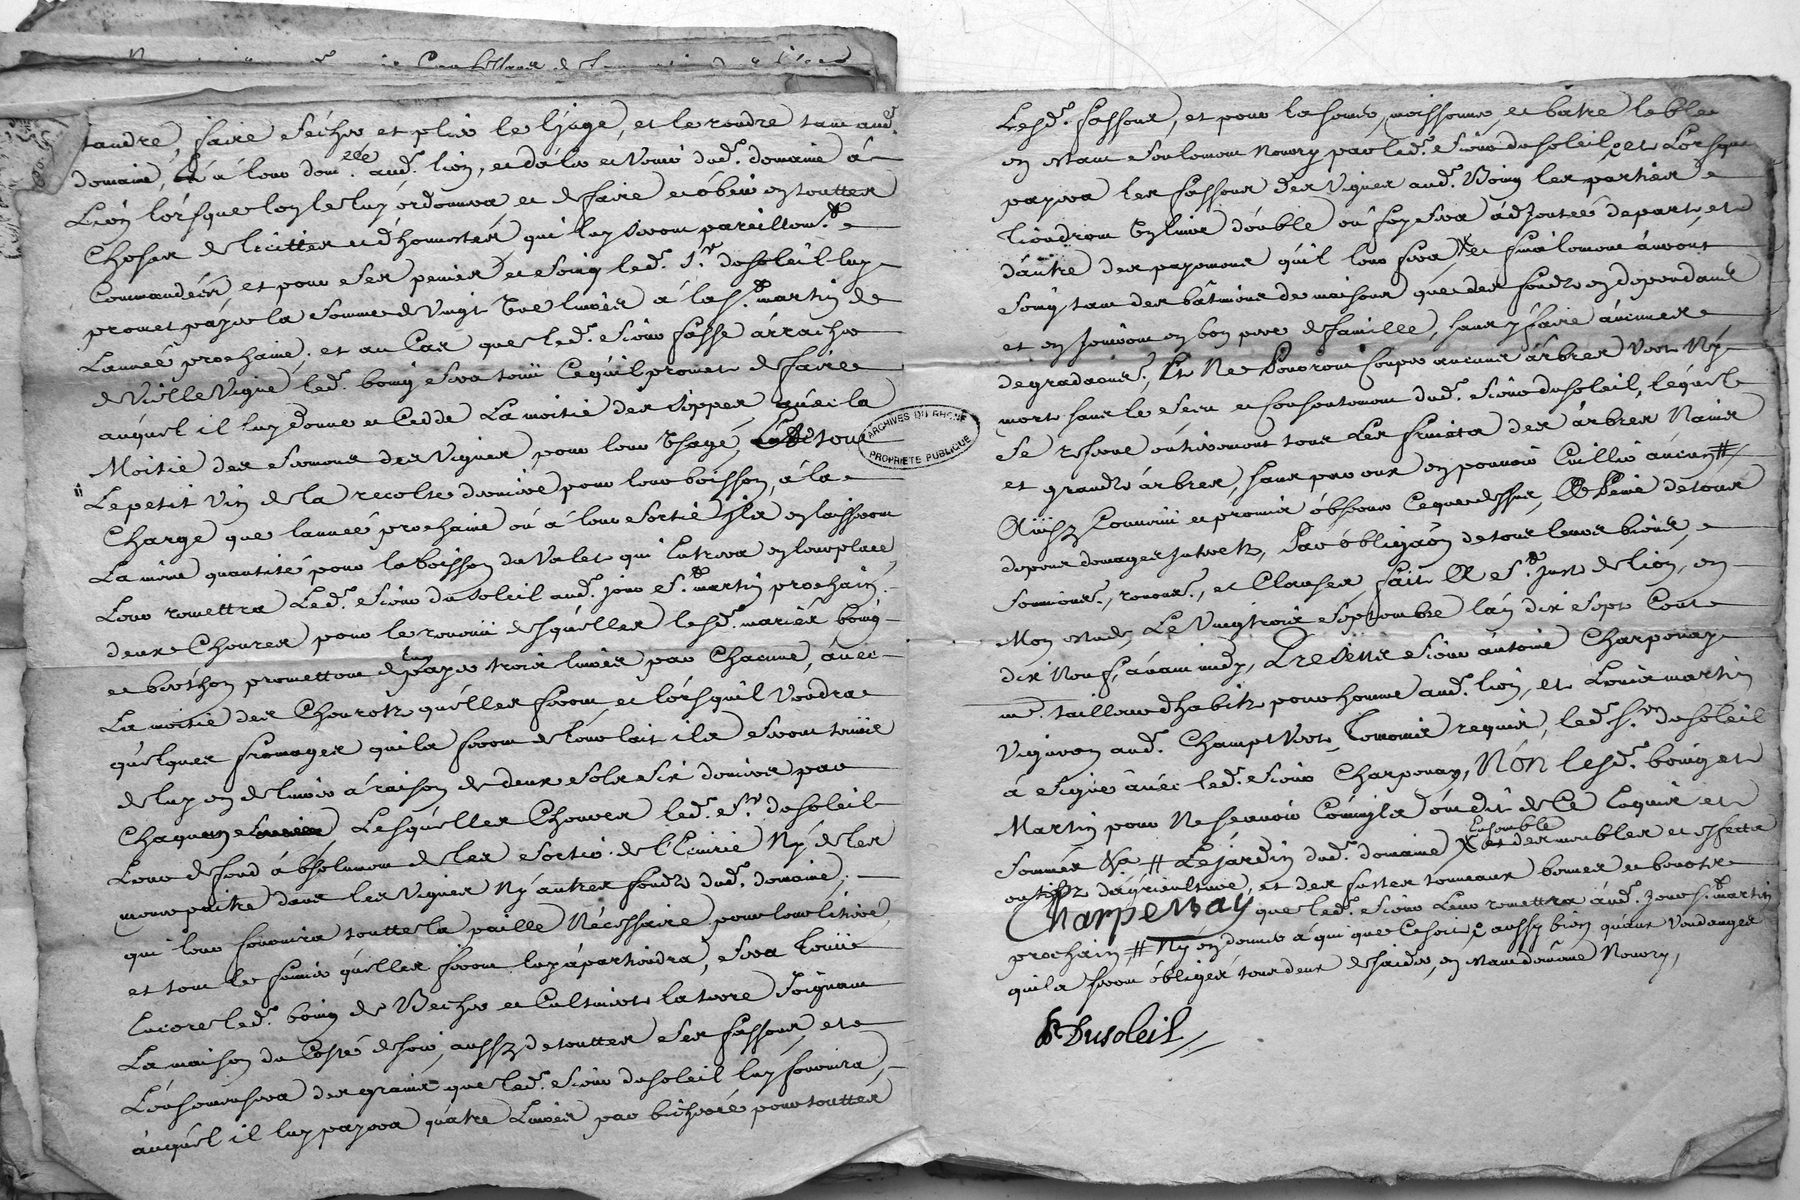 tandre, faire secher et plier le linge, et le rendre tant aud.
domaine, à leur dom. aud. lion, et daler et venir dud. domaine à
Lion lorsque lon le luy ordonnera et de faire et obeir en touttes
Choses de licittes et dhonnestes qui luy seront pareillem.t
Commandées, et pour ses peines et soing led. s.r dusoleil luy
promet payer la somme de vingt une livres à la s.t martin de
Lannée prochaine, et au Cas que led. sieur fasse arracher
de vielle vigne led. boiny sera tenu Ce quil promet de faire
auquel il luy donne et Cedde La moitié des sippes, avec la
Moitié des sermens des vignes pour leur usage, et tout
Le petit vin de la recolte derniere pour leur boisson, à la
Charge que lannée prochaine ou à leur sortie ils en laisseront
La même quantité pour la boisson du valet qui Entrera en leur place,
Leur remettra Led. sieur du soleil aud. jour s.t martin prochain
deux Chevres pour le revenu desquelles lesd. mariés boiny
et berthon promettent de luy payer trois livres par Chacune, avec
La moitié des Chevrots quelles feront et lorsquil voudra
quelques fromages quils feront de leur lait ils seront tenus
de luy en delivrer à raison de deux sols six deniers par
Chaquun Lesquelles Chevres led. s.r dusoleil
Leur defend absolument de les sortir de lEcurie Ny de les
mener paitre dans les vignes Ny autres fonds dud. domaine,
qui leur fournira toutte la paille Nécessaire pour leur litiere
et tout le fumier quelles feront luy apartiendra, sera tenu
Encore led. boiny de Becher et Cultiver la terre joignant
La maison du Costé de soir, aussy de touttes ses fassons, et
Lensemensera des grains que led. sieur dusoleil luy fournira,
auquel il luy payera quatre Livres par bicherée pour touttes
Lesd. fassons, et pour la semer, moissonner, et batre le bled
en estant seulement Nourry par led. sieur dusoleil, et Lorsque
payera les fassons des vignes aud. Boiny les parties
tiendront un livre double ou foy sera adjoutée de part et
dautre des payemens quil leur fera, et finalement auront
soing tant des bâtimens de maisons que des fonds en dependant
et en jouiront en bon pere de famille, sans y faire aucunes
degradaons., Et Ne pouront couper aucuns arbres vert Ny
morts sans le seu et consentement dud. sieur dusoleil, lequel
se reserve entierement tous Les fruits des arbres Nains
et grands arbres, sans par eux en pouvoir Cuillir aucun #
Ainsy Convenu et promis observer Ceque dessus, A Peine de tous
depens domages Interets, Par obligaon de tous leurs biens,
soumions., renons., et Clauses, fait A s.t Just de lion, en
Mon estude, Le vingtrois septembre lan dix sept Cent
dix Neuf, avant midy, Presents sieur antoine Charpenay
m.e tailleur dhabits pour homme aud. lion, et Louis martin
vigneron aud. Champt vert, temoins requis, led. s.r dusoleil
a signé avec led. sieur Charpenay, Non lesd. boiny et
Martin pour Ne scavoir Comm'ils ont dit de Ce Enquis et
sommés # Le jardin dud. domaine Ensemble et des meubles et effects
outils dagriculture, et des fustes tonneaux bennes et benots
Charpenay que led. sieur Leur remettra aud. jour s.t martin
prochain # Ny en donner à qui que Ce soit, aussy bien quaux vendanges
quils seront obligés tous deux de faider, en étant de même Nourry,
Dusoleil
ARCHIVES DU RHONE
PROPRIETE PUBLIQUE